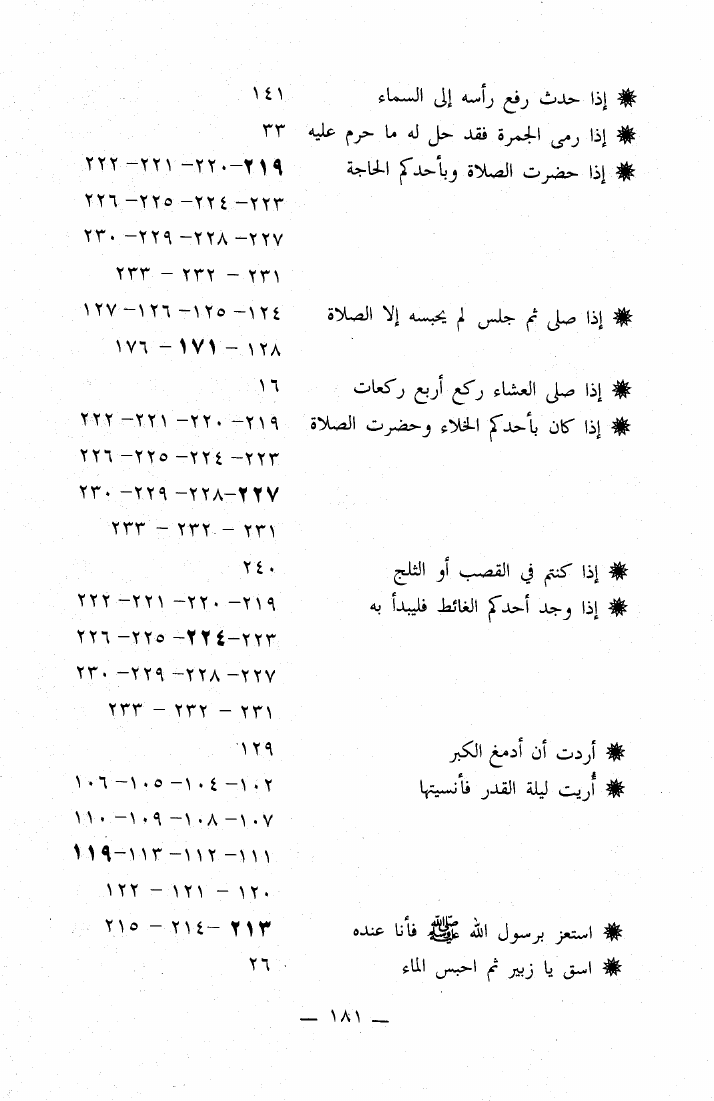 إذا حدث رفع رأسه إلى السماء ١٤١
إذا رمى الجمرة فقد حل له ما حرم عليه ٣٣
إذا حضرت الصلاة وبأحدكم الحاجة ٢١٩-٢٢٠- ٢٢١- ٢٢٢
٢٢٣- ٢٢٤- ٢٢٥- ٢٢٦
٢٢٧- ٢٢٨- ٢٢٩- ٢٣٠
٢٣١ - ٢٣٢ - ٢٣٣
إذا صلى ثم جلس لم يحبسه إلا الصلاة ١٢٤- ١٢٥- ١٢٦- ١٢٧
١٢٨ - ١٧١ - ١٧٦
إذا صلى العشاء ركع أربع ركعات ١٦
إذا كان بأحدكم الخلاء وحضرت الصلاة ٢١٩- ٢٢٠- ٢٢١- ٢٢٢
٢٢٣- ٢٢٤- ٢٢٥- ٢٢٦
٢٢٧-٢٢٨- ٢٢٩- ٢٣٠
٢٣١ - ٢٣٢ - ٢٣٣
إذا كنتم في القصب أو الثلج ٢٤٠
إذا وجد أحدكم الغائط فليبدأ به ٢١٩- ٢٢٠- ٢٢١- ٢٢٢
٢٢٣-٢٢٤- ٢٢٥- ٢٢٦
٢٢٧- ٢٢٨- ٢٢٩- ٢٣٠
٢٣١ - ٢٣٢ - ٢٣٣
أردت أن أدمغ الكبر ١٢٩
أُريت ليلة القدر فأنسيتها ١٠٢- ١٠٤- ١٠٥- ١٠٦
١٠٧- ١٠٨- ١٠٩- ١١٠
١١١- ١١٢- ١١٣-١١٩
١٢٠ - ١٢١ - ١٢٢
استعز برسول الله ﷺ فأنا عنده ٢١٣ -٢١٤ - ٢١٥
اسق يا زبير ثم احبس الماء ٢٦
— ١٨١ —